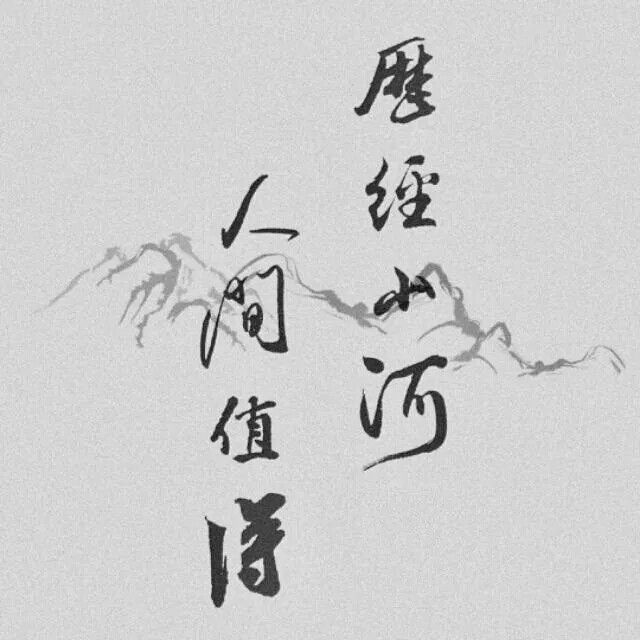 歷經山河
人間值得